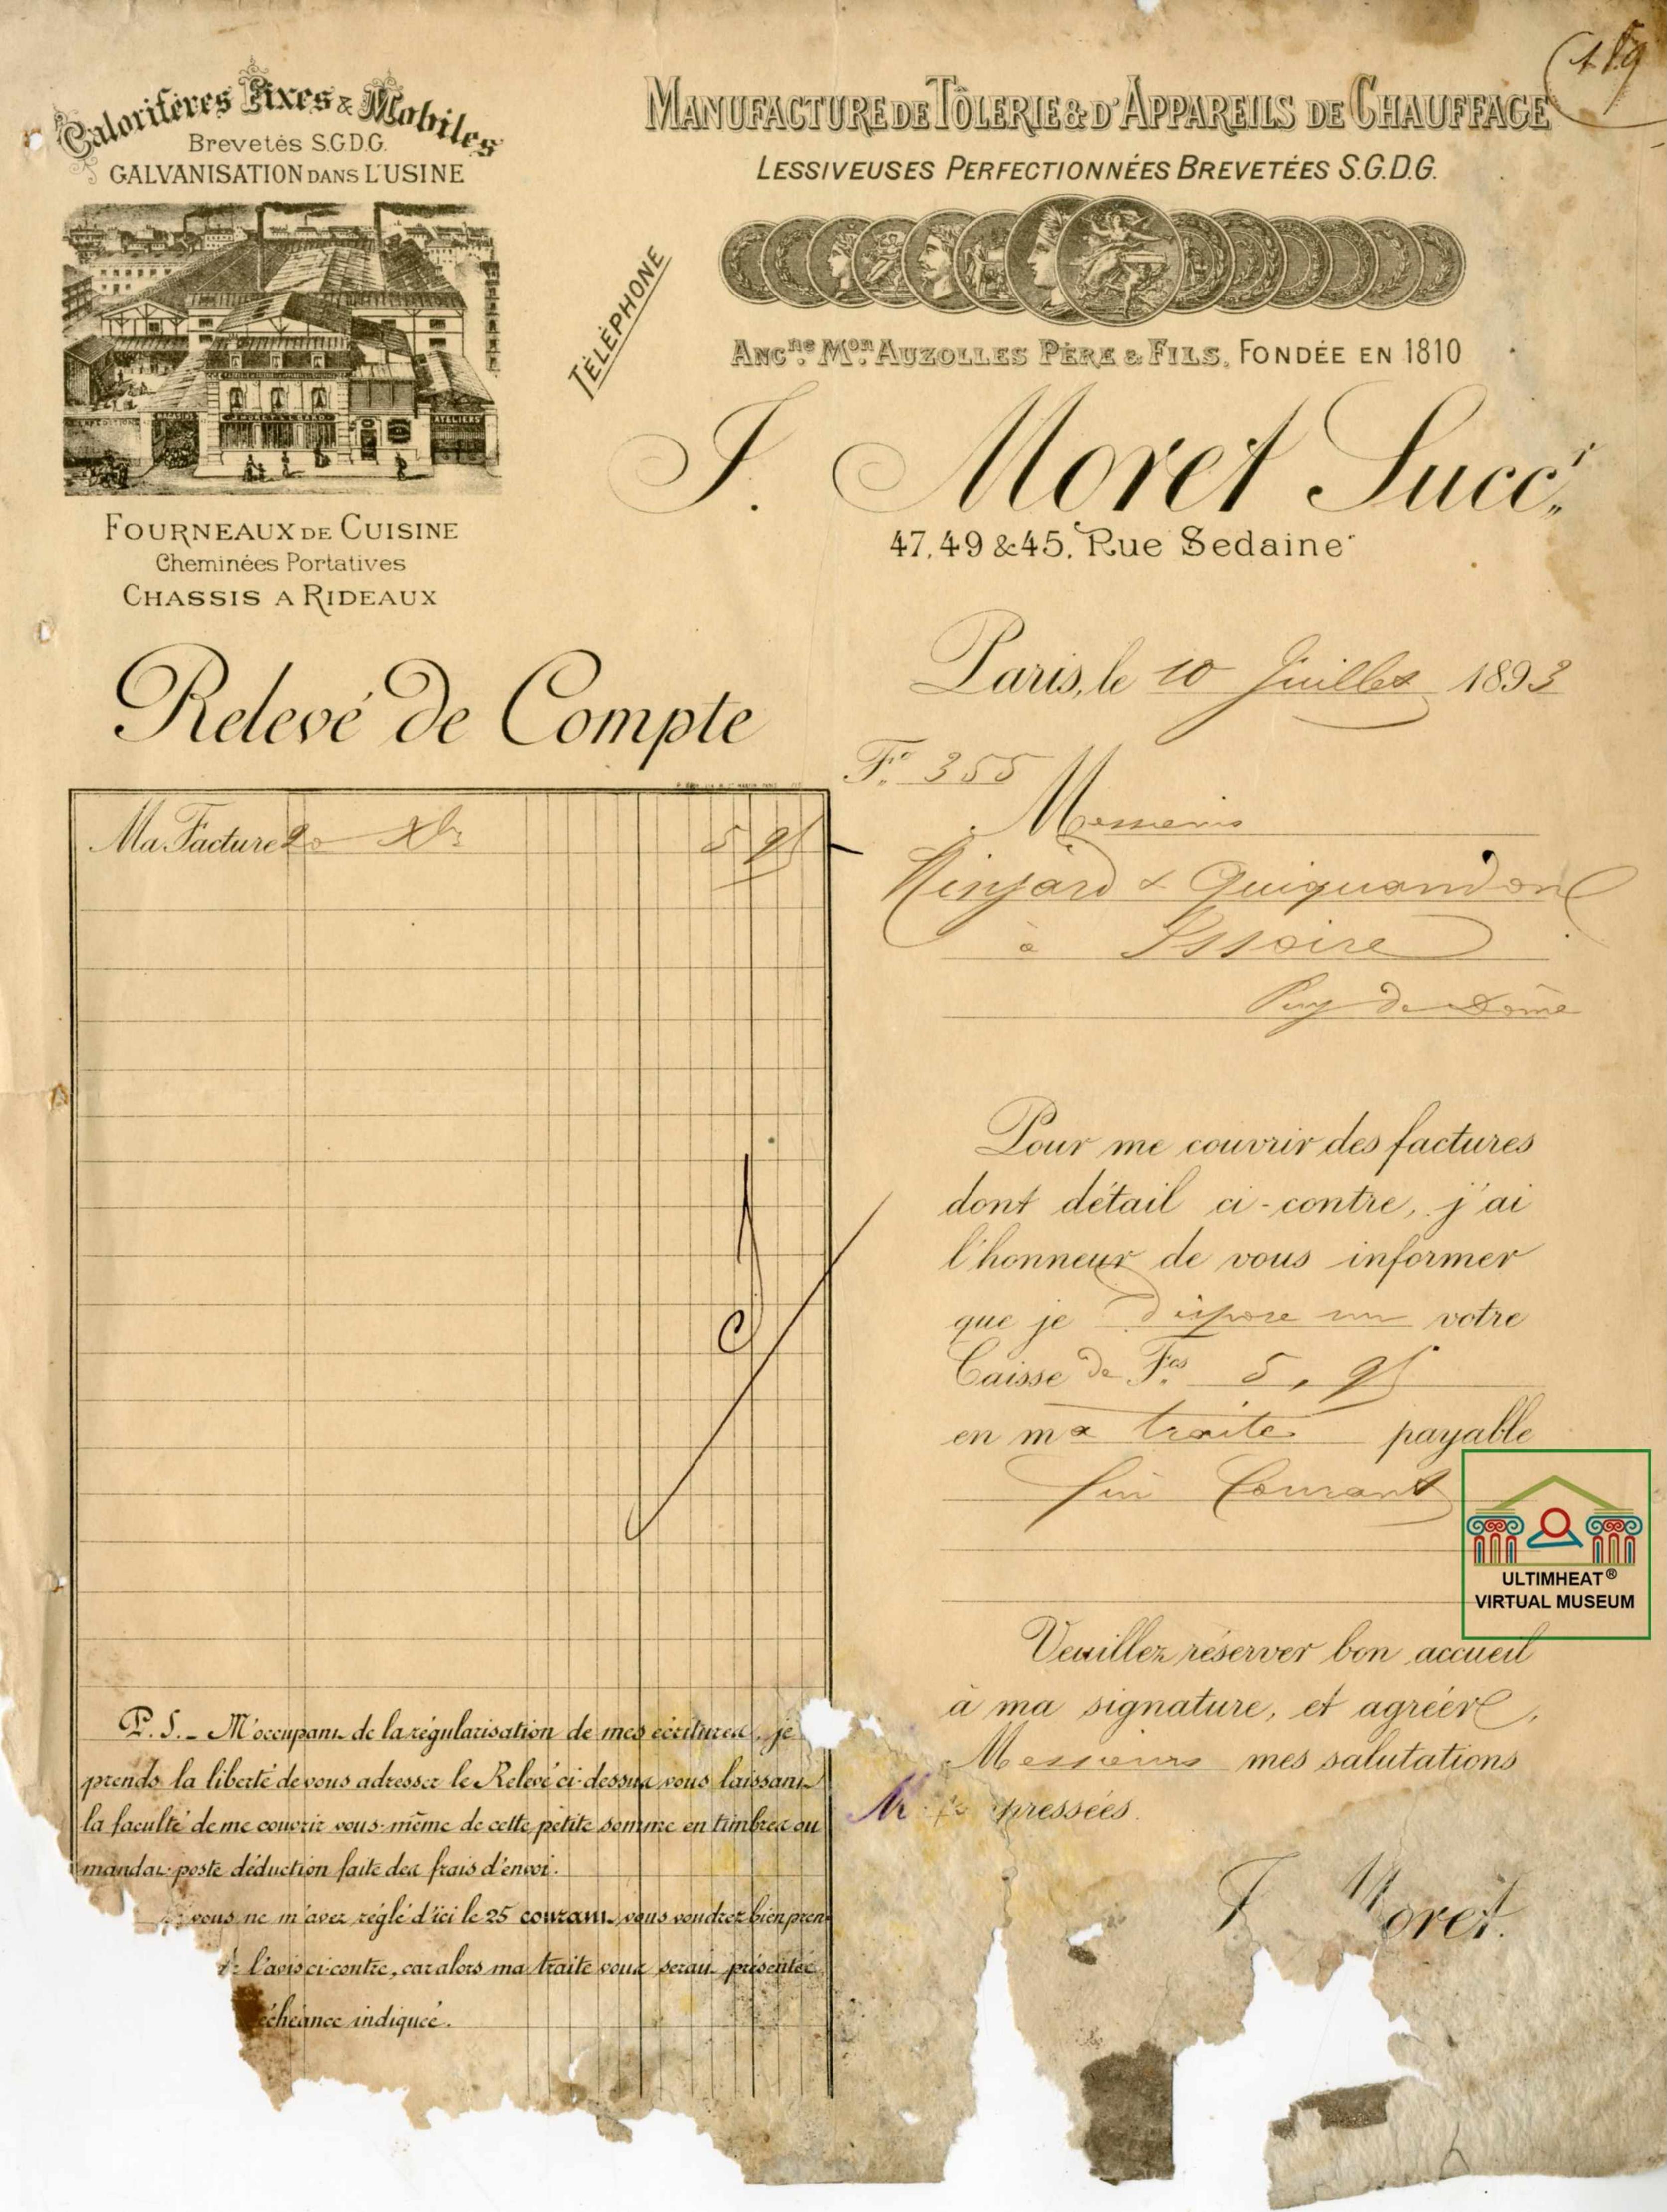 Calorifères Fixes & Mobiles
Brevetés S.G.D.G.
GALVANISATION DANS L'USINE
FOURNEAUX DE CUISINE
Cheminées Portatives
CHASSIS A RIDEAUX
TÉLÉPHONE
MANUFACTURE DE TÔLERIE & D'APPAREILS DE CHAUFFAGE
LESSIVEUSES PERFECTIONNÉES BREVETÉES S.G.D.G.
ANCNE MON AUZOLLES PÈRE & FILS, FONDÉE EN 1810
J. Moret Succr
47, 49 & 45, Rue Sedaine
Paris, le 10 Juillet 1893
Relevé de Compte
Fo 355
Messieurs
à Issoire
Puy de Dôme
Ma Facture 20 Xbr 5 95
Pour me couvrir des factures
dont détail ci-contre, j'ai
l'honneur de vous informer
que je dispose sur votre
Caisse de Fcs 5,95
en ma traite payable
fin Courant
Veuillez réserver bon accueil
à ma signature, et agréer,
Messieurs mes salutations
pressées.
J. Moret.
P.S. - M'occupant de la régularisation de mes écritures, je
prends la liberté de vous adresser le Relevé ci-dessus vous laissant
la faculté de me couvrir vous-même de cette petite somme en timbres ou
mandat-poste déduction faite des frais d'envoi.
vous ne m'avez réglé d'ici le 25 courant, vous voudrez bien pren
l'avis ci-contre, car alors ma traite vous serait présentée
échéance indiquée.
ULTIMHEAT®
VIRTUAL MUSEUM